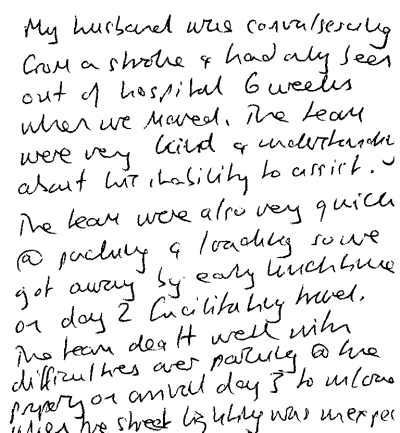 My husband was convalescing
from a stroke & had only been
out of hospital 6 weeks
when we moved. The team
were very kind & understandin
about his inability to assist.
The team were also very quick
@ packing & loading so we
got away by early lunchtime
on day 2 facilitating travel.
The team dealt well with
difficulties over parking @ the
property on arrival day 3 to
when the street lighting was